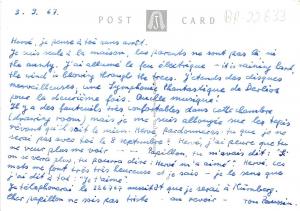 3. 9. 67.
POST CARD
BP-22633
Hervé, je pense à toi sans arrêt.
Je suis seule à la maison, les parents ne sont pas là, ni
the aunty. J'ai allumé le feu électrique - it is raining and
the wind is blowing through the trees. J'étends des disques
merveilleuses, une Symphonie phantastique de Berlioz
pour la deuxième fois. Quelle musique!
Il y a des fauteuils très confortables dans cette chambre
(drawing room) mais je me suis allongée sur les tapis
rêvant qu'il soit le mien. Hervé pardonneras-tu que je ne
serai pas avec toi le 8 septembre? Hervé, j'ai peur que tu
ne veux plus me voir - Papillon, tu m'avais dit: Si
on se verra plus, tu pourras dire: Hervé m'a aimé! Hervé, ces
mots me font très très heureuse et je sais - je le sens que
j'ai dit à toi - "je t'aime"
Je téléphonerai le 226767 aussitôt que je serai à Nürnberg.
cher papillon ne sois pas triste - au revoir - ton